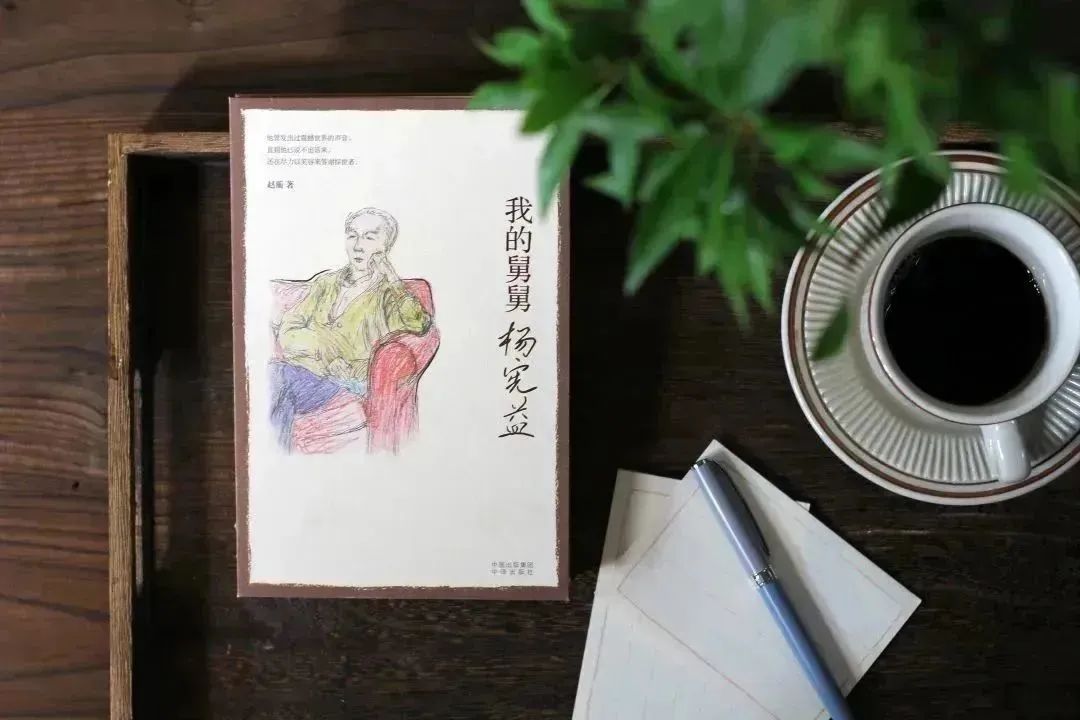 他曾发出过震撼世界的声音。
直到他已说不出话来，
还在尽力以笑容来答谢探世者。
赵蘅 著
我的舅舅
杨宪益
中国出版集团
中译出版社